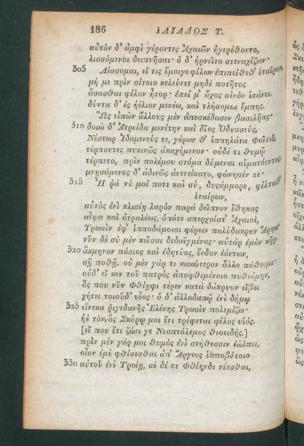 186 ΙΛΙΑΔΟΣ Τ.
αὐτὸν δ' ἀμφὶ γέροντες Ἀχαιῶν ἠγερέθοντο,
λισσόμενοι δειπνῆσαι· ὁ δ' ἠρνεῖτο στεναχίζων·
305 Λίσσομαι, εἴ τις ἔμοιγε φίλων ἐπιπείθεθ' ἑταίρων,
μή με πρὶν σίτοιο κελεύετε μηδὲ ποτῆτος
ἄσασθαι φίλον ἦτορ· ἐπεί μ' ἄχος αἰνὸν ἱκάνει·
δύντα δ' ἐς ἠέλιον μενέω, καὶ τλήσομαι ἔμπης.
Ὣς εἰπὼν ἄλλους μὲν ἀπεσκέδασεν βασιλῆας·
310 δοιὼ δ' Ἀτρείδα μενέτην καὶ δῖος Ὀδυσσεύς,
Νέστωρ Ἰδομενεύς τε, γέρων θ' ἱππηλάτα Φοῖνιξ,
τέρποντες πυκινῶς ἀκαχήμενον· οὐδέ τι θυμῷ
τέρπετο, πρὶν πολέμου στόμα δύμεναι αἱματόεντος.
μνησάμενος δ' ἁδινῶς ἀνενείκατο, φώνησέν τε·
315 Ἦ ῥά νύ μοί ποτε καὶ σύ, δυσάμμορε, φίλταθ'
ἑταίρων,
αὐτὸς ἐνὶ κλισίῃ λαρὸν παρὰ δεῖπνον ἔθηκας
αἶψα καὶ ὀτραλέως, ὁπότε σπερχοίατ' Ἀχαιοί,
Τρωσὶν ἐφ' ἱπποδάμοισι φέρειν πολύδακρυν Ἄρηα·
νῦν δὲ σὺ μὲν κεῖσαι δεδαϊγμένος· αὐτὰρ ἐμὸν κῆρ
320 ἄκμηνον πόσιος καὶ ἐδητύος, ἔνδον ἐόντων,
σῇ ποθῇ. οὐ μὲν γάρ τι κακώτερον ἄλλο πάθοιμι·
οὐδ' εἴ κεν τοῦ πατρὸς ἀποφθιμένοιο πυθοίμην,
ὅς που νῦν Φθίηφι τέρεν κατὰ δάκρυον εἴβει
χήτεϊ τοιοῦδ' υἷος· ὁ δ' ἀλλοδαπῷ ἐνὶ δήμῳ
325 εἵνεκα ῥιγεδανῆς Ἑλένης Τρωσὶν πολεμίζω·
ἠὲ τὸν ὃς Σκύρῳ μοι ἔνι τρέφεται φίλος υἱός.
[εἴ που ἔτι ζώει γε Νεοπτόλεμος θεοειδής.]
πρὶν μὲν γάρ μοι θυμὸς ἐνὶ στήθεσσιν ἐώλπει,
οἶον ἐμὲ φθίσεσθαι ἀπ' Ἄργεος ἱπποβότοιο
330 αὐτοῦ ἐνὶ Τροίῃ, σὲ δέ τε Φθίηνδε νέεσθαι,